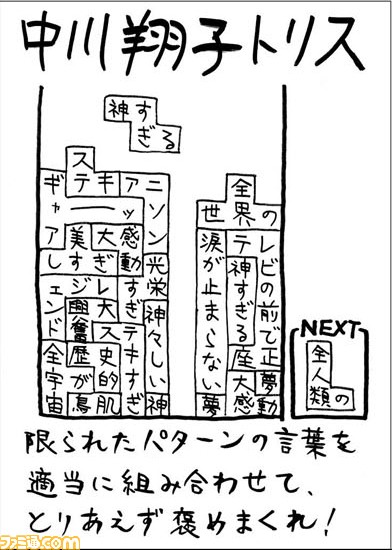 中川翔子トリス
神す
ぎる
ス
ギテキアニ
全
ャーーッソ
世界の
ア美大感ン
涙テレ
しすぎ動光
が神ビ
ェジレす栄
止すの
ン興大ぎ神
まぎ前
ド奮ステ々
らるで
全歴史キし
な座正
宇が的すい
い大夢
宙鳥肌ぎ神
夢感動
NEXT
全
人
類の
限られたパターンの言葉を
適当に組み合わせて、
とりあえず褒めまくれ!
ファミ通.com